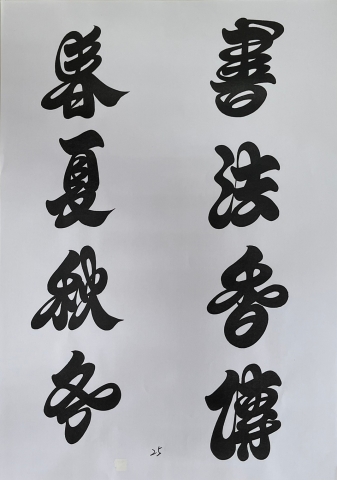 書法香傳
春夏秋冬
25